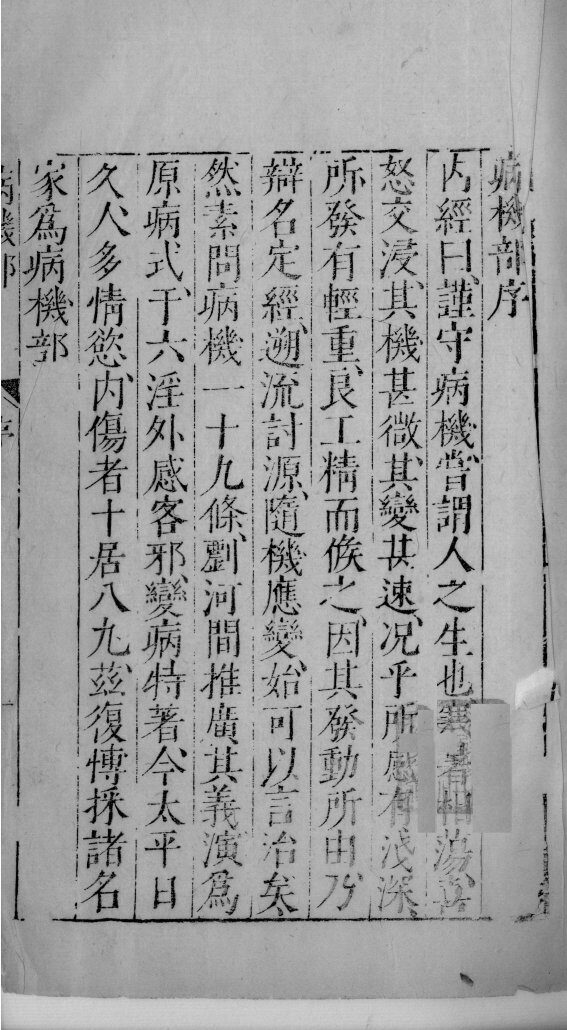 病機部序
内經曰、謹守病機、嘗謂人之生也者相蕩、喜
怒交浸、其機甚微、其變甚速、况乎所感有淺深、
所發有輕重、良工精而候之、因其發動所由、乃
辯名定經、遡流討源、隨機應變、始可以言治矣、
然素問病機一十九條、劉河間推廣其義演爲
原病式、于六淫外感客邪、變病特著、今太平日
久、人多情慾、内傷者十居八九、茲復博採諸名
家爲病機部
病機部 序 一